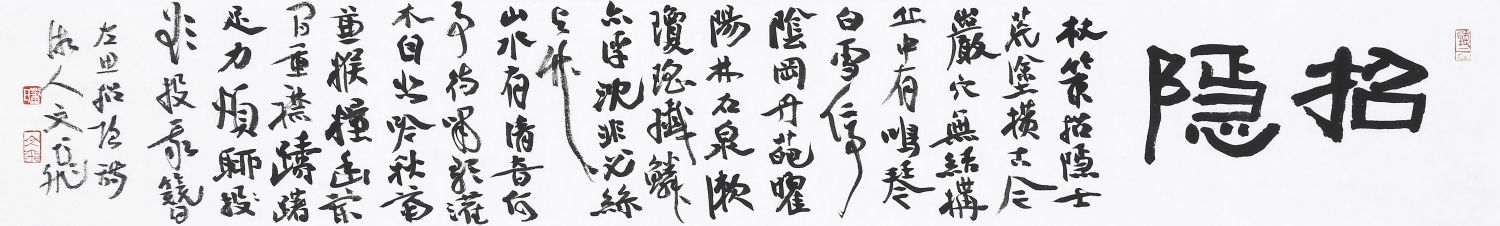 招隐
杖策招隐士
荒塗横古今
巖穴無結構
丘中有鳴琴
白雪停
陰岡丹葩曜
陽林石泉漱
瓊瑤纖鱗
亦浮沈非必絲
与竹
山水有清音何
事待嘯歌灌
木自悲吟秋菊
兼糇糧幽蘭
間重襟躊躇
足力煩聊欲
投吾簪
左思招隐詩
人文飛